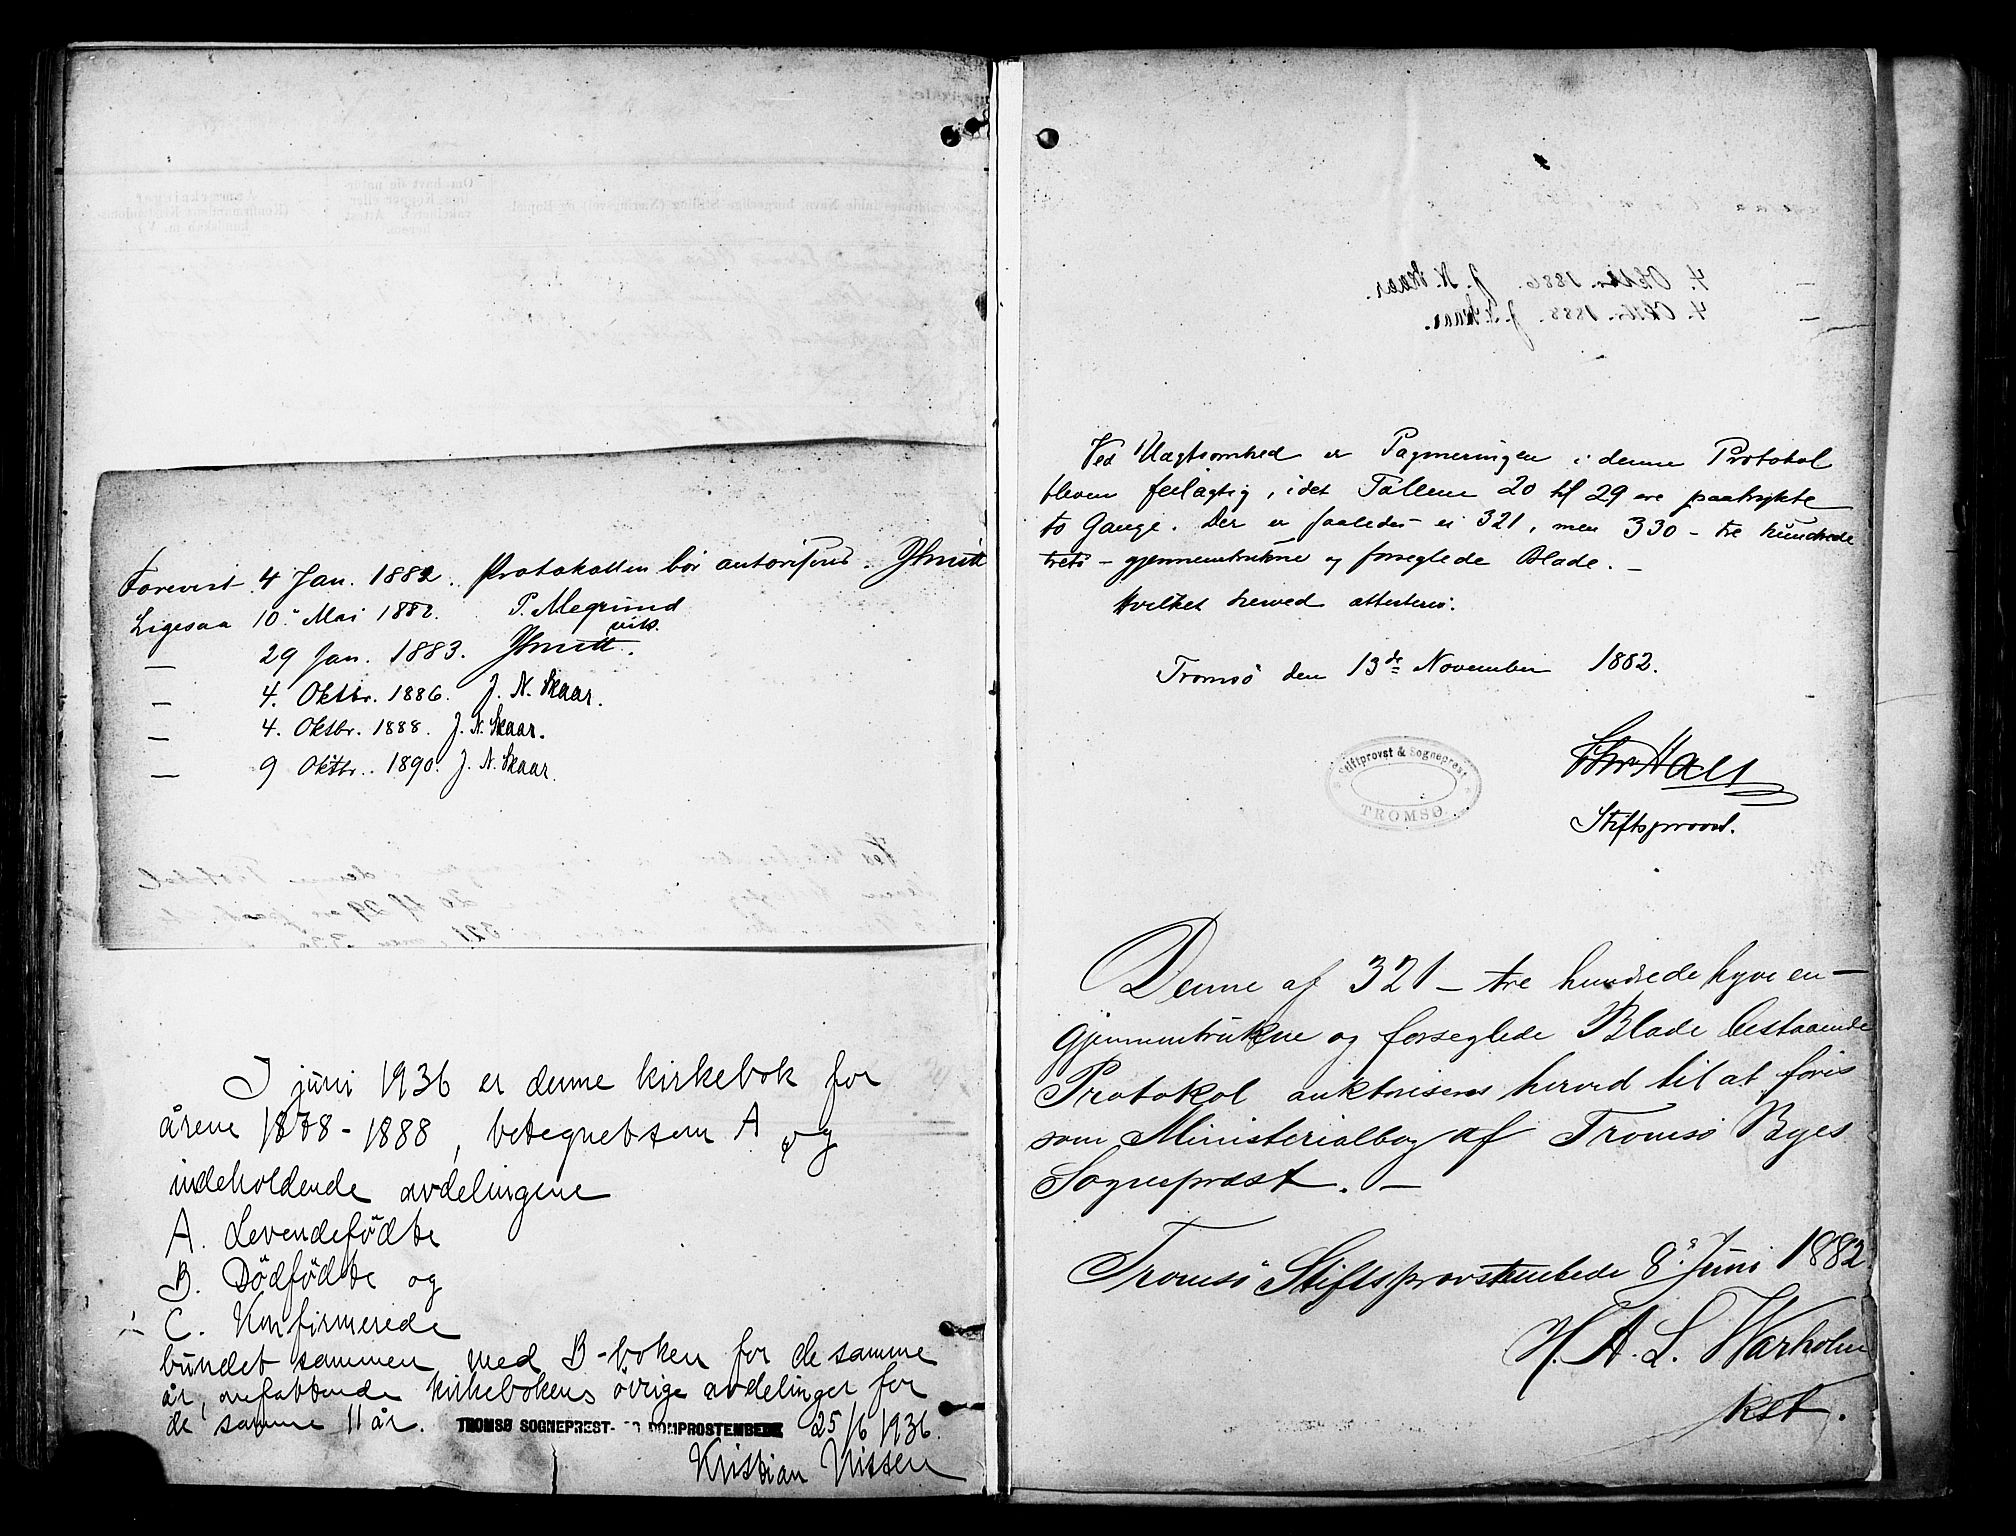 Forevist 4 Jan. 1882. Protokollen bör autoriseres. JSmitt
Ligesaa 10 Mai 1882. P. Alegrund
vik.
— 29 Jan. 1883. JSmitt.
— 4. Oktbr. 1886. J. N. Skaar.
— 4. Oktbr. 1888. J. N. Skaar.
— 9 Oktbr. 1890. J. N. Skaar.
I juni 1936 er denne kirkebok for
årene 1878-1888, betegnet som A og
indeholdende avdelingene
A. Levendefödte
B. Dödfödte og
C. Konfirmerede
bundet sammen med B-boken for de samme
år, omfattende kirkebokens övrige avdelinger for
de samme 11 år. TROMSØ SOGNEPREST- OG DOMPROSTEMBEDE 25/6 1936.
Kristian Nissen
Ved Uagtsomhed er Pagineringen i denne Protokol
bleven feilagtig, idet Tallene 20 til 29 ere paatrykte
to Gange. Der er saaledes ei 321, men 330 - tre hundrede
treti - gjennemtrukne og forseglede Blade. —
Hvilket herved attesteres.
Tromsö den 13de November 1882.
Stiftprovst & Sogneprest
TROMSØ
Stiftsprovst.
Denne af 321 - tre hundrede tyve en -
gjennemtrukne og forseglede Blade bestaaende
Protokol auktoriseres herved til at föres
som Ministerialbog af Tromsö Byes
Sognepræst. —
Tromsö Stiftsprovstembede 8 Juni 1882
H. A. L. Warholm
kst.